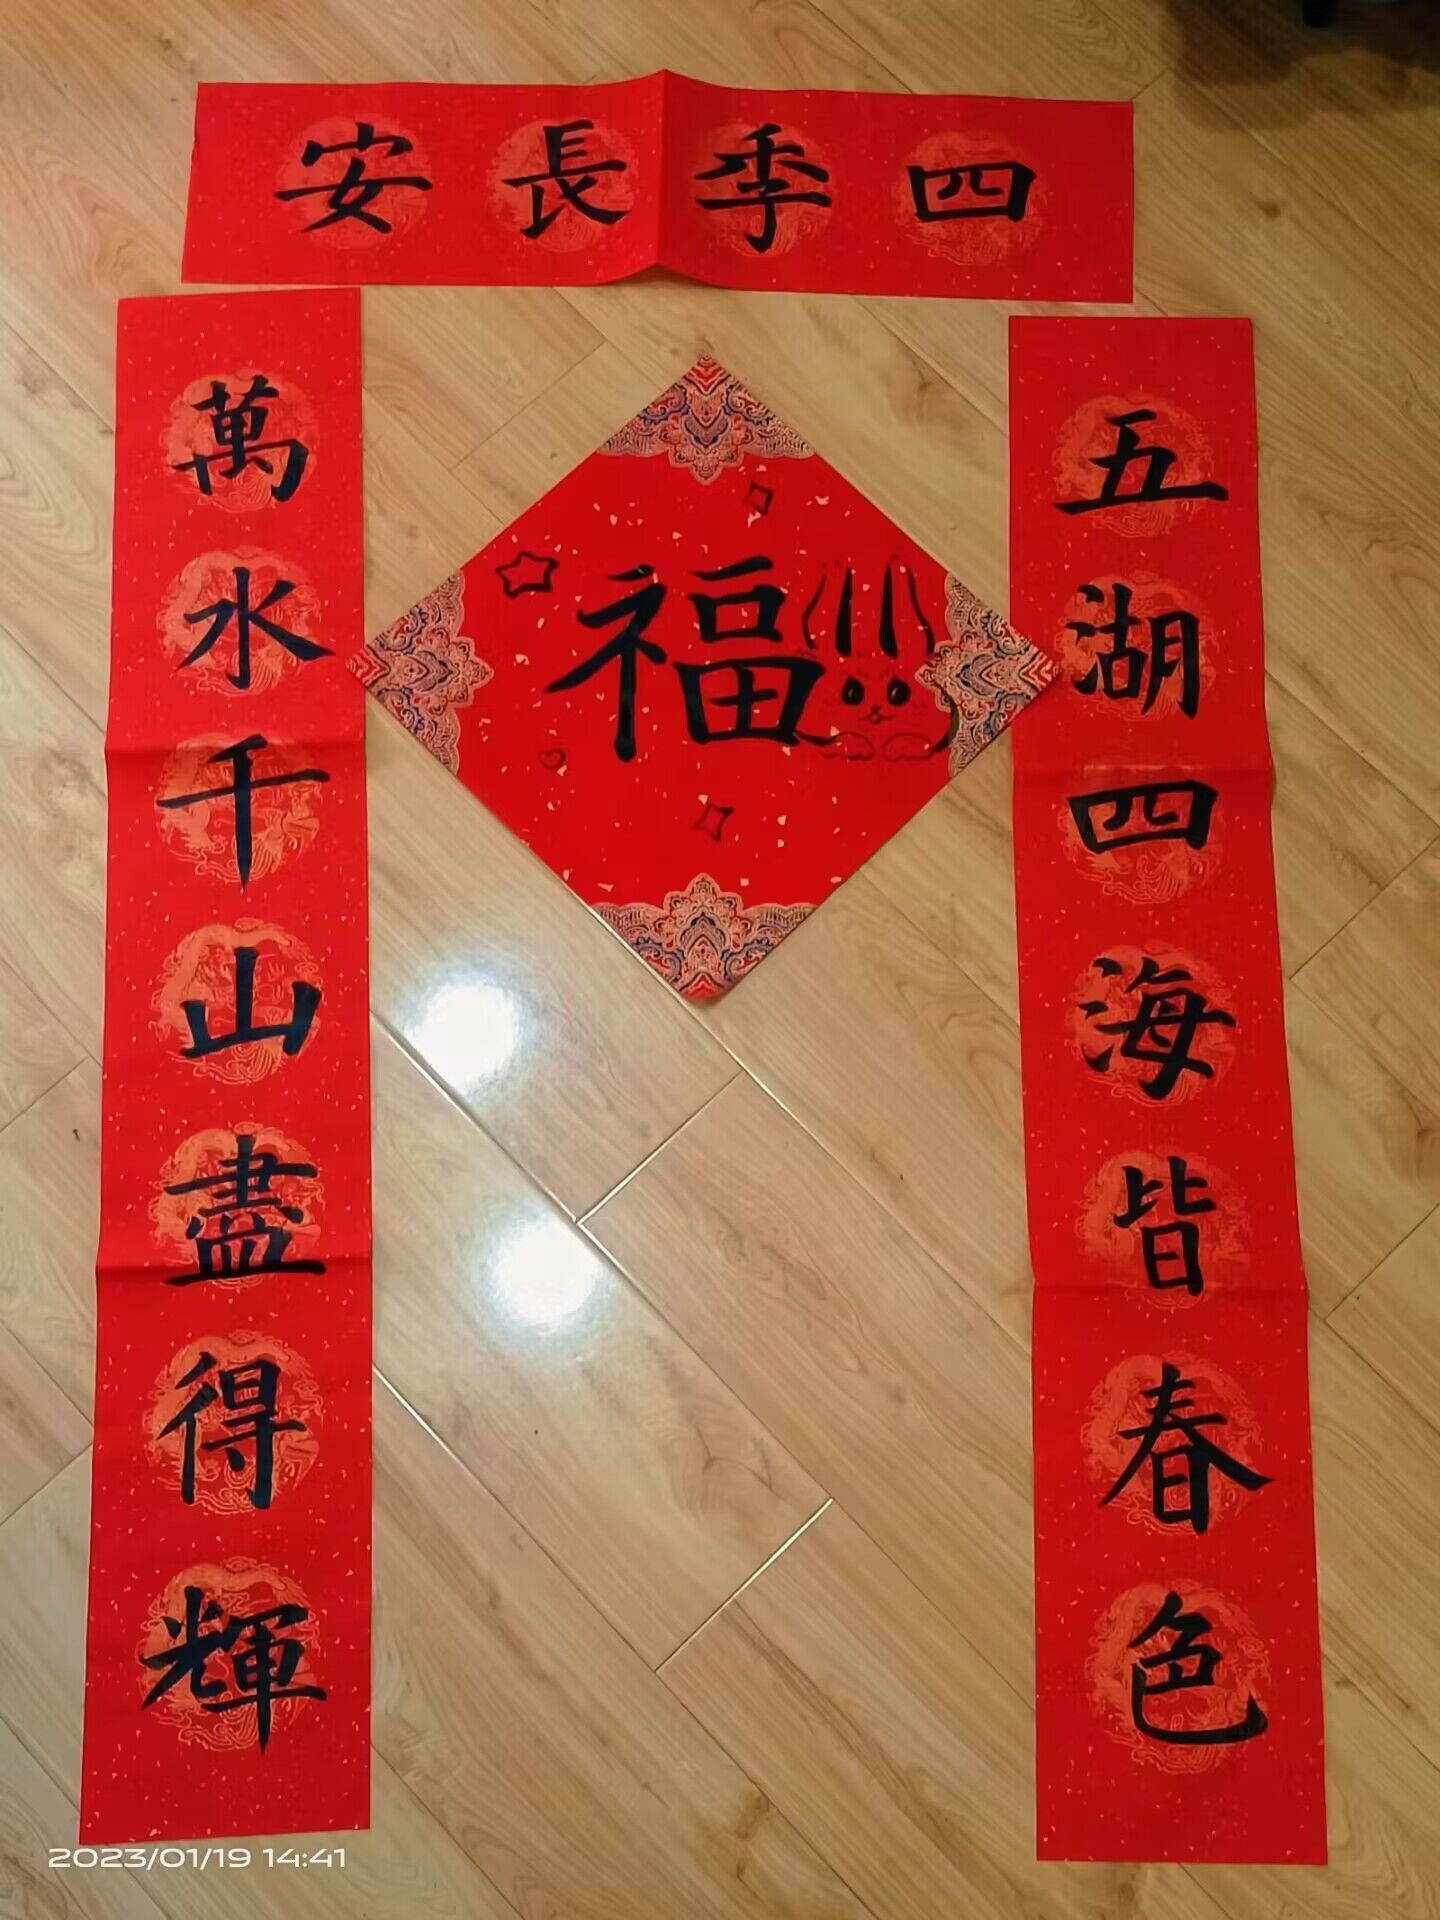 四季長安
五湖四海皆春色
萬水千山盡得輝
福
2023/01/19 14:41